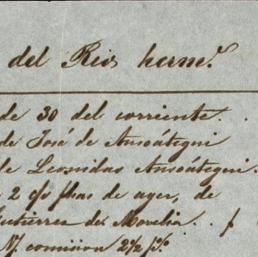 del Rio herm.ˢ
de 30 del corriente . .
de José de Ansoátegui
de Leonidas Ansoátegui.
2 c/o phas de ayer, de
Gutierrez de Morelia . . p
N/ comision 2½ p%